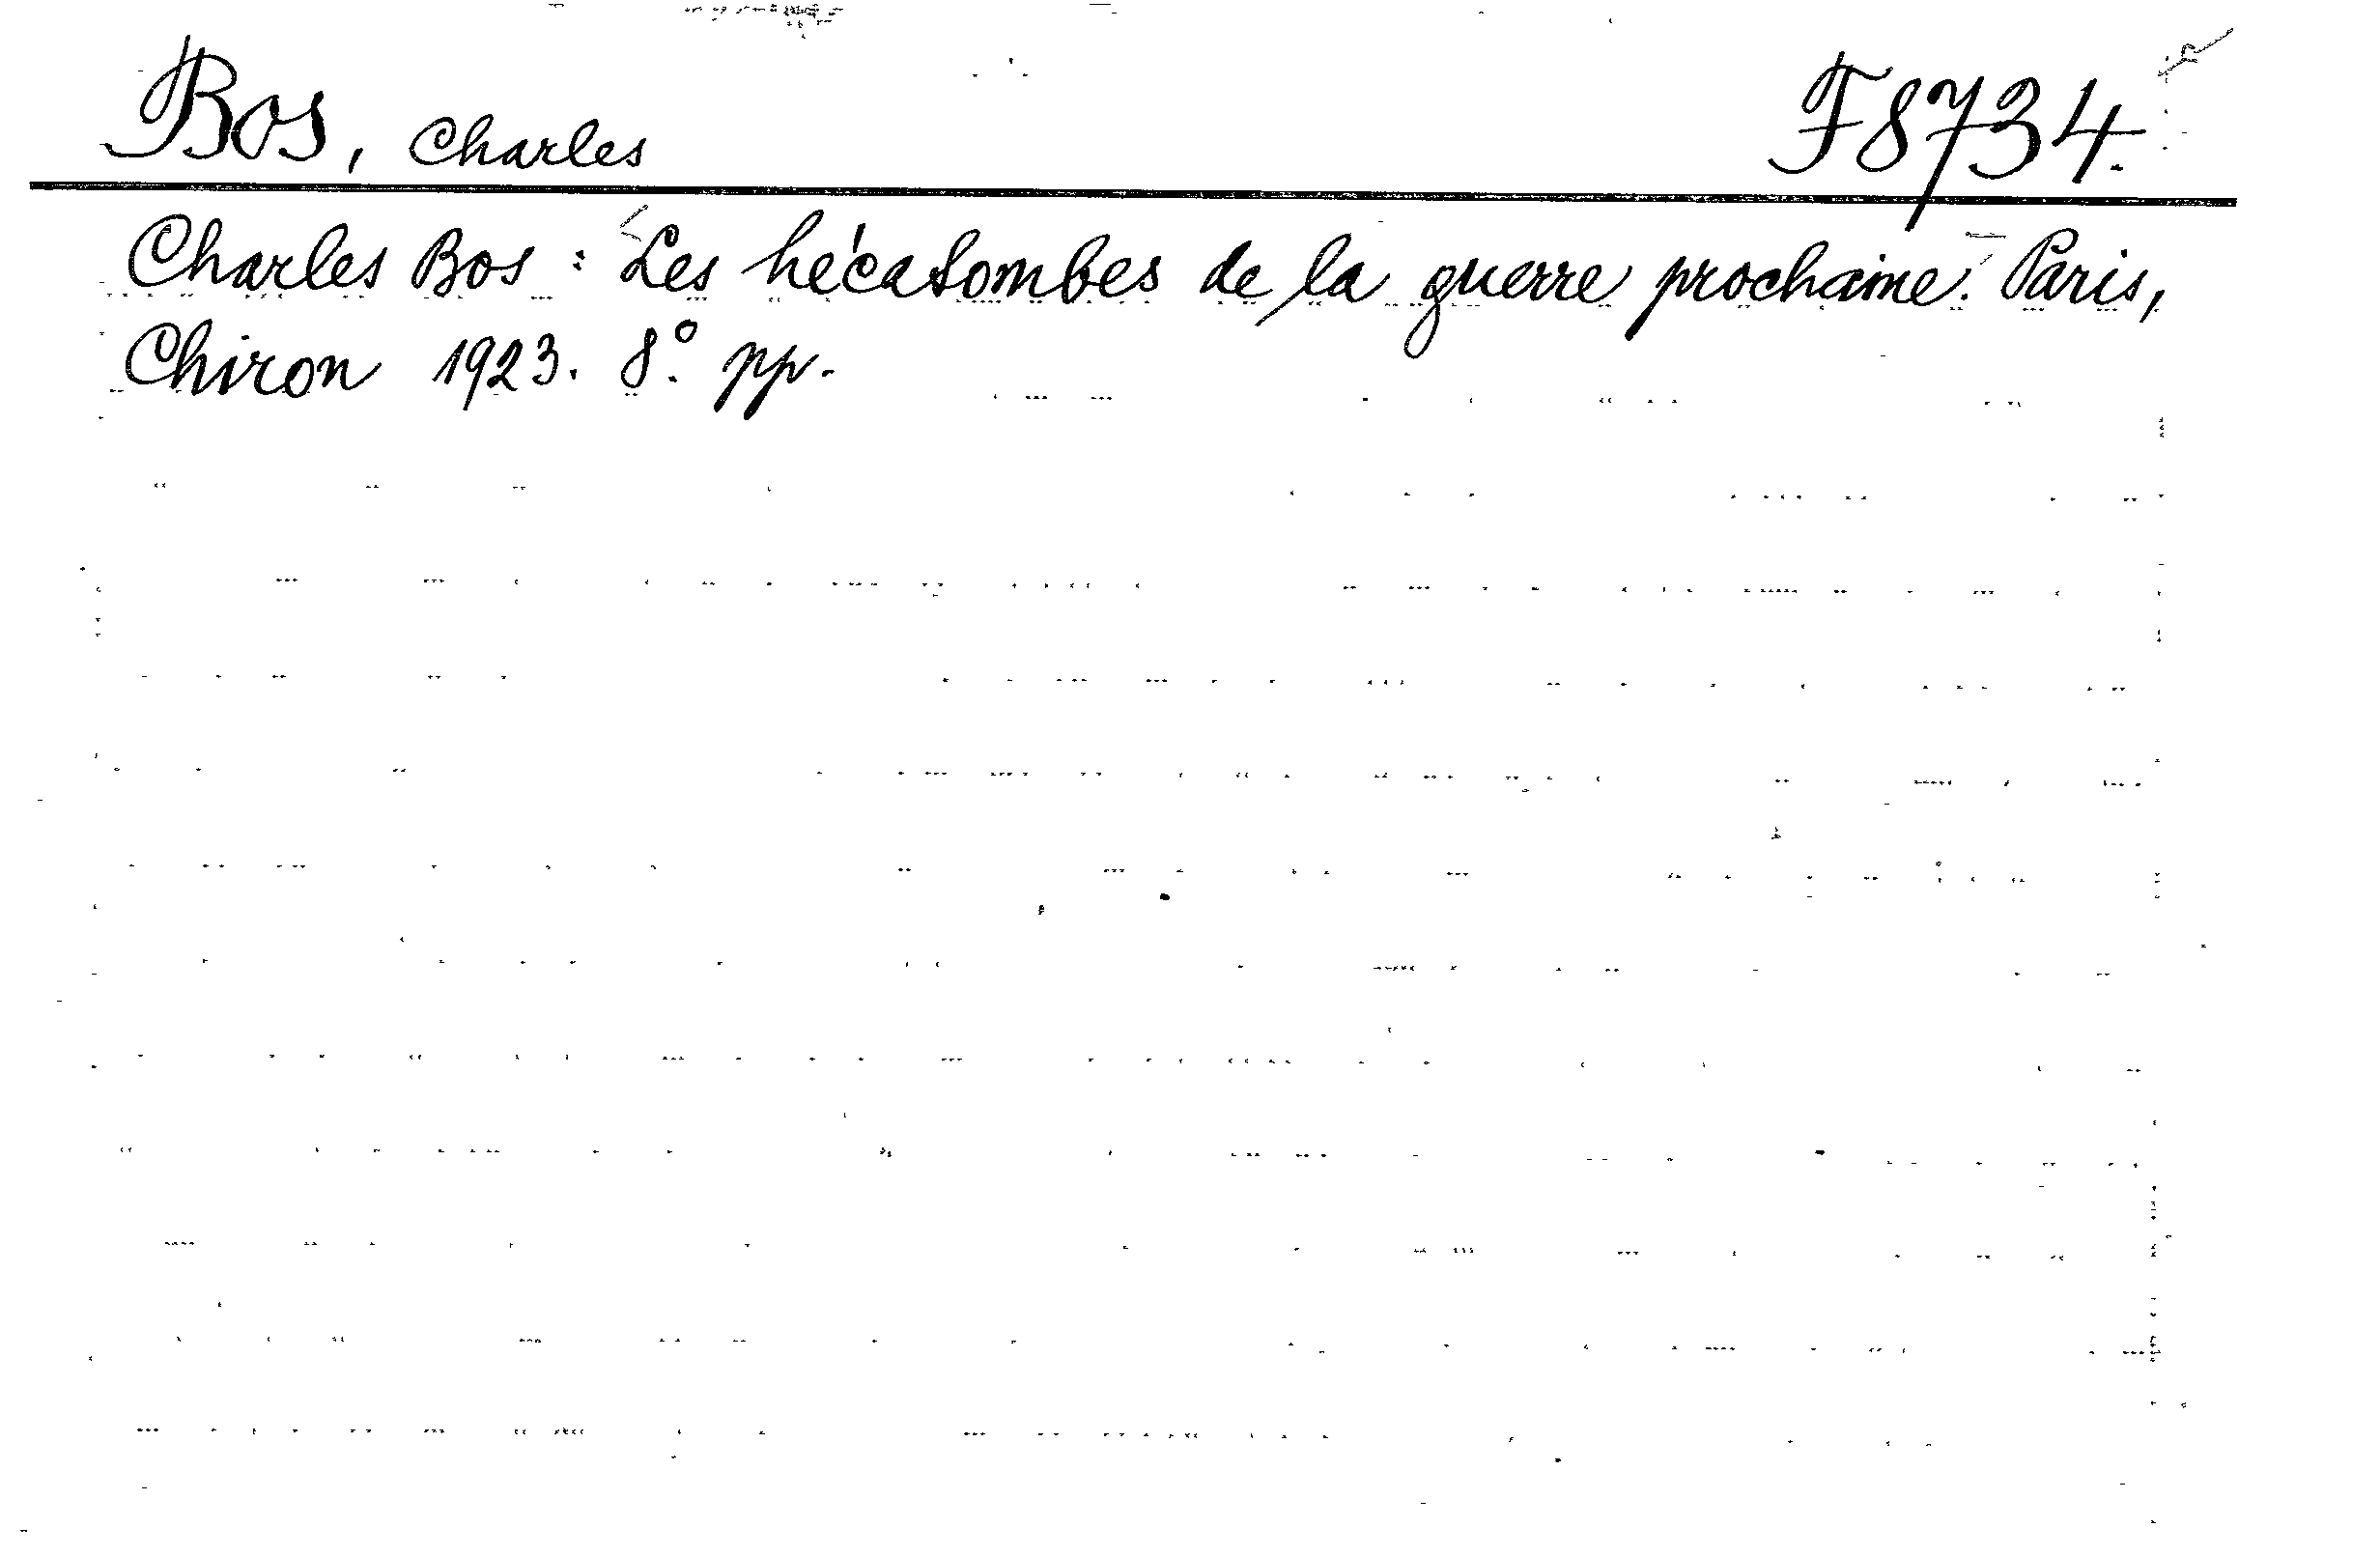 Bos, Charles F8734.
Charles Bos: Les hécatombes de la guerre prochaine. Paris,
Chiron 1923. 8°. pp.